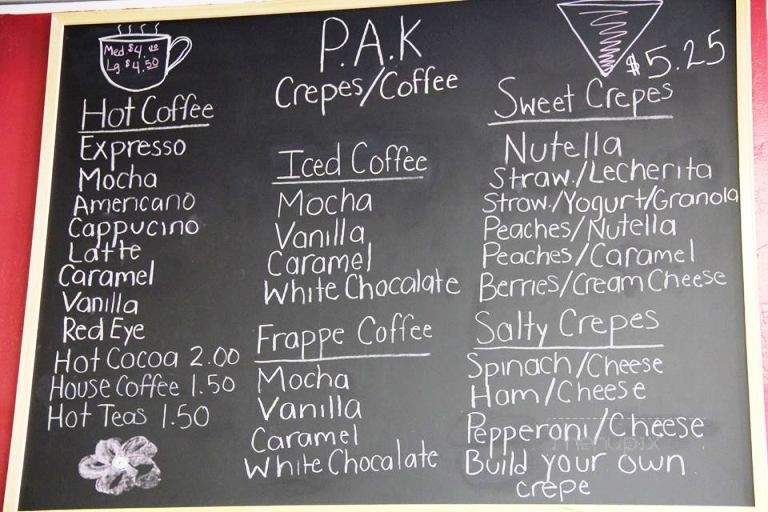 P.A.K
Crepes/Coffee
Med $4.00
Lg. $4.50
Hot Coffee
Expresso
Mocha
Americano
Cappucino
Latte
Caramel
Vanilla
Red Eye
Hot Cocoa 2.00
House Coffee 1.50
Hot Teas 1.50
Iced Coffee
Mocha
Vanilla
Caramel
White Chocolate
Frappe Coffee
Mocha
Vanilla
Caramel
White Chocolate
$5.25
Sweet Crepes
Nutella
Straw./Lecherita
Straw./Yogurt/Granola
Peaches/Nutella
Peaches/Caramel
Berries/Cream Cheese
Salty Crepes
Spinach/Cheese
Ham/Cheese
Pepperoni/Cheese
Build your own
crepe
menupix